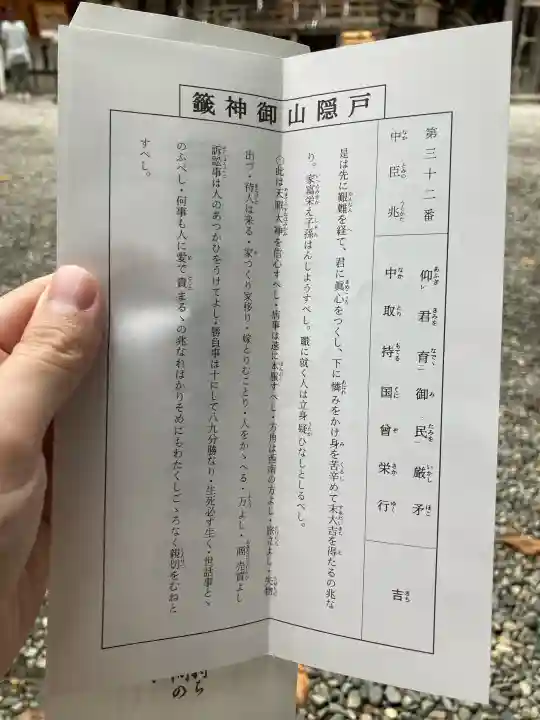 戸隠山御神籤
第三十二番
中臣兆
仰レ君育二御民一厳矛
中取持国曽栄行
吉
是は先に艱難を経て、君に眞心をつくし、下に憐みをかけ身を苦辛めて末大吉を得たるの兆な
り。家富栄え子孫はんしようすべし。職に就く人は立身疑ひなしとしるべし。
○此は天照大神を信心すべし・病事は速に本服すべし・方角は西南の方よし・旅立よし・失物
出づ・待人は来る・家づくり家移り・嫁とりむことり・人をかゝへる・万よし・商売買よし
訴訟事は人のあつかひをうけてよし・勝負事は十にして八九分勝なり・生死必ず生く・世話事とゝ
のふべし・何事も人に愛で貴まるゝの兆なればかりそめにもわたくしごゝろなく親切をむねと
すべし。